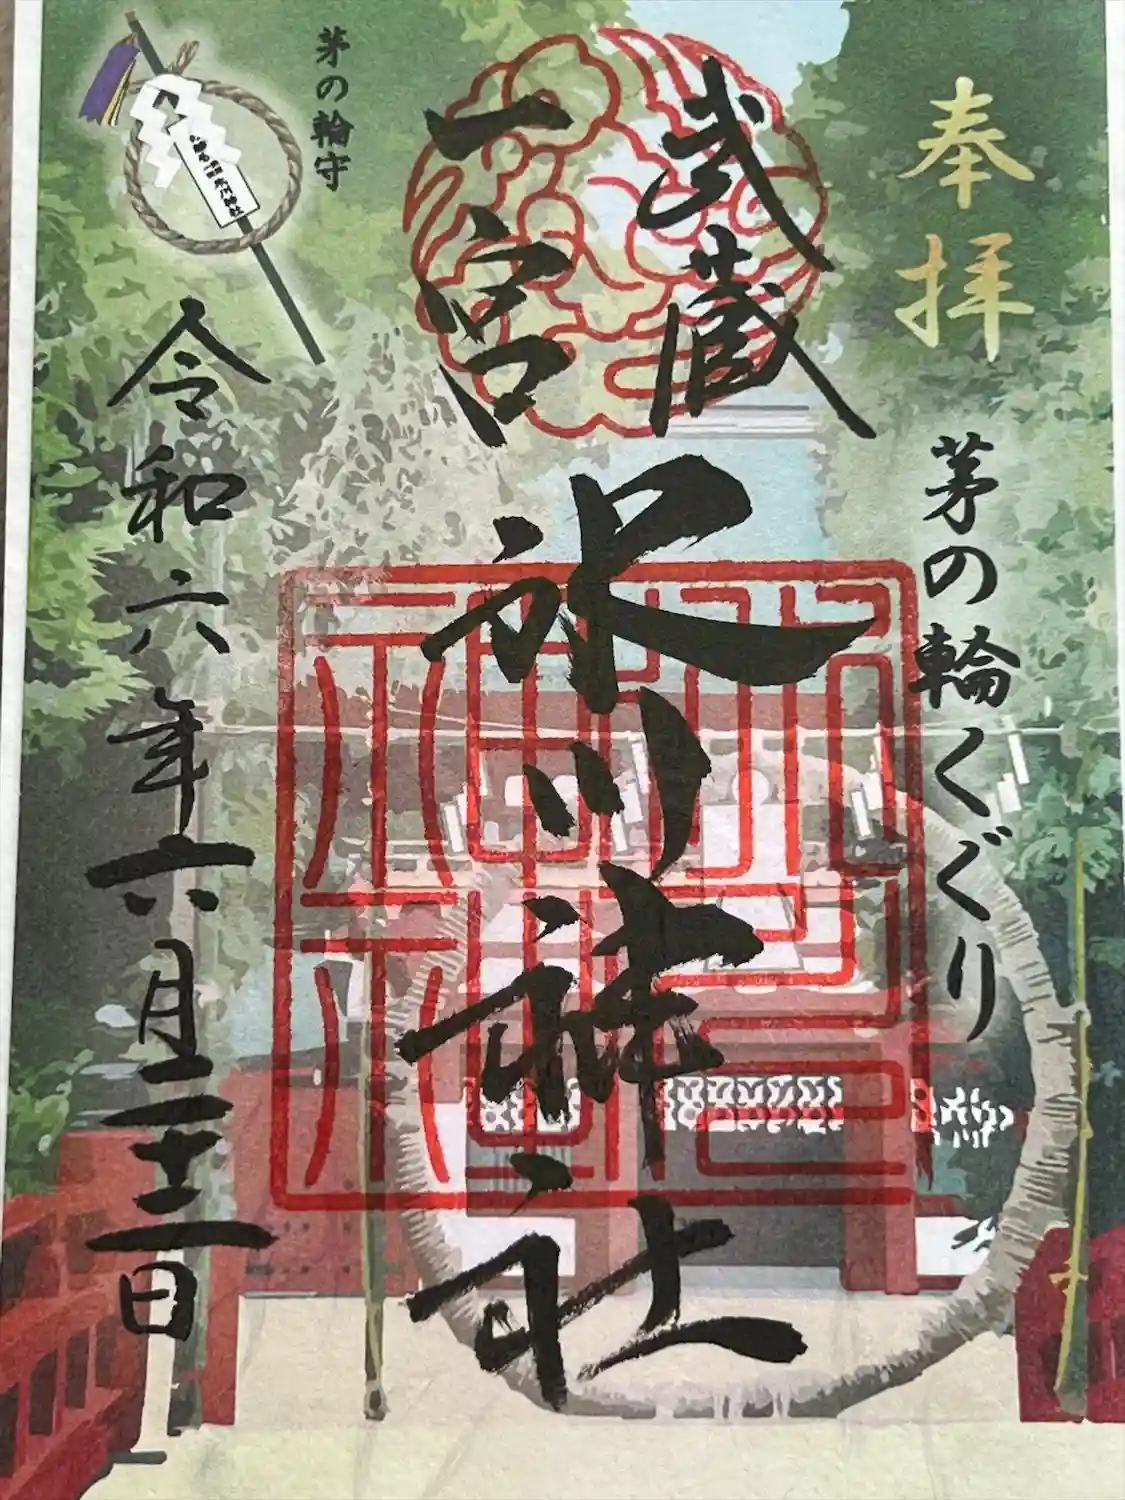 奉拝
茅の輪くぐり
武蔵
一宮
氷川神社
茅の輪守
令和六年六月二十二日